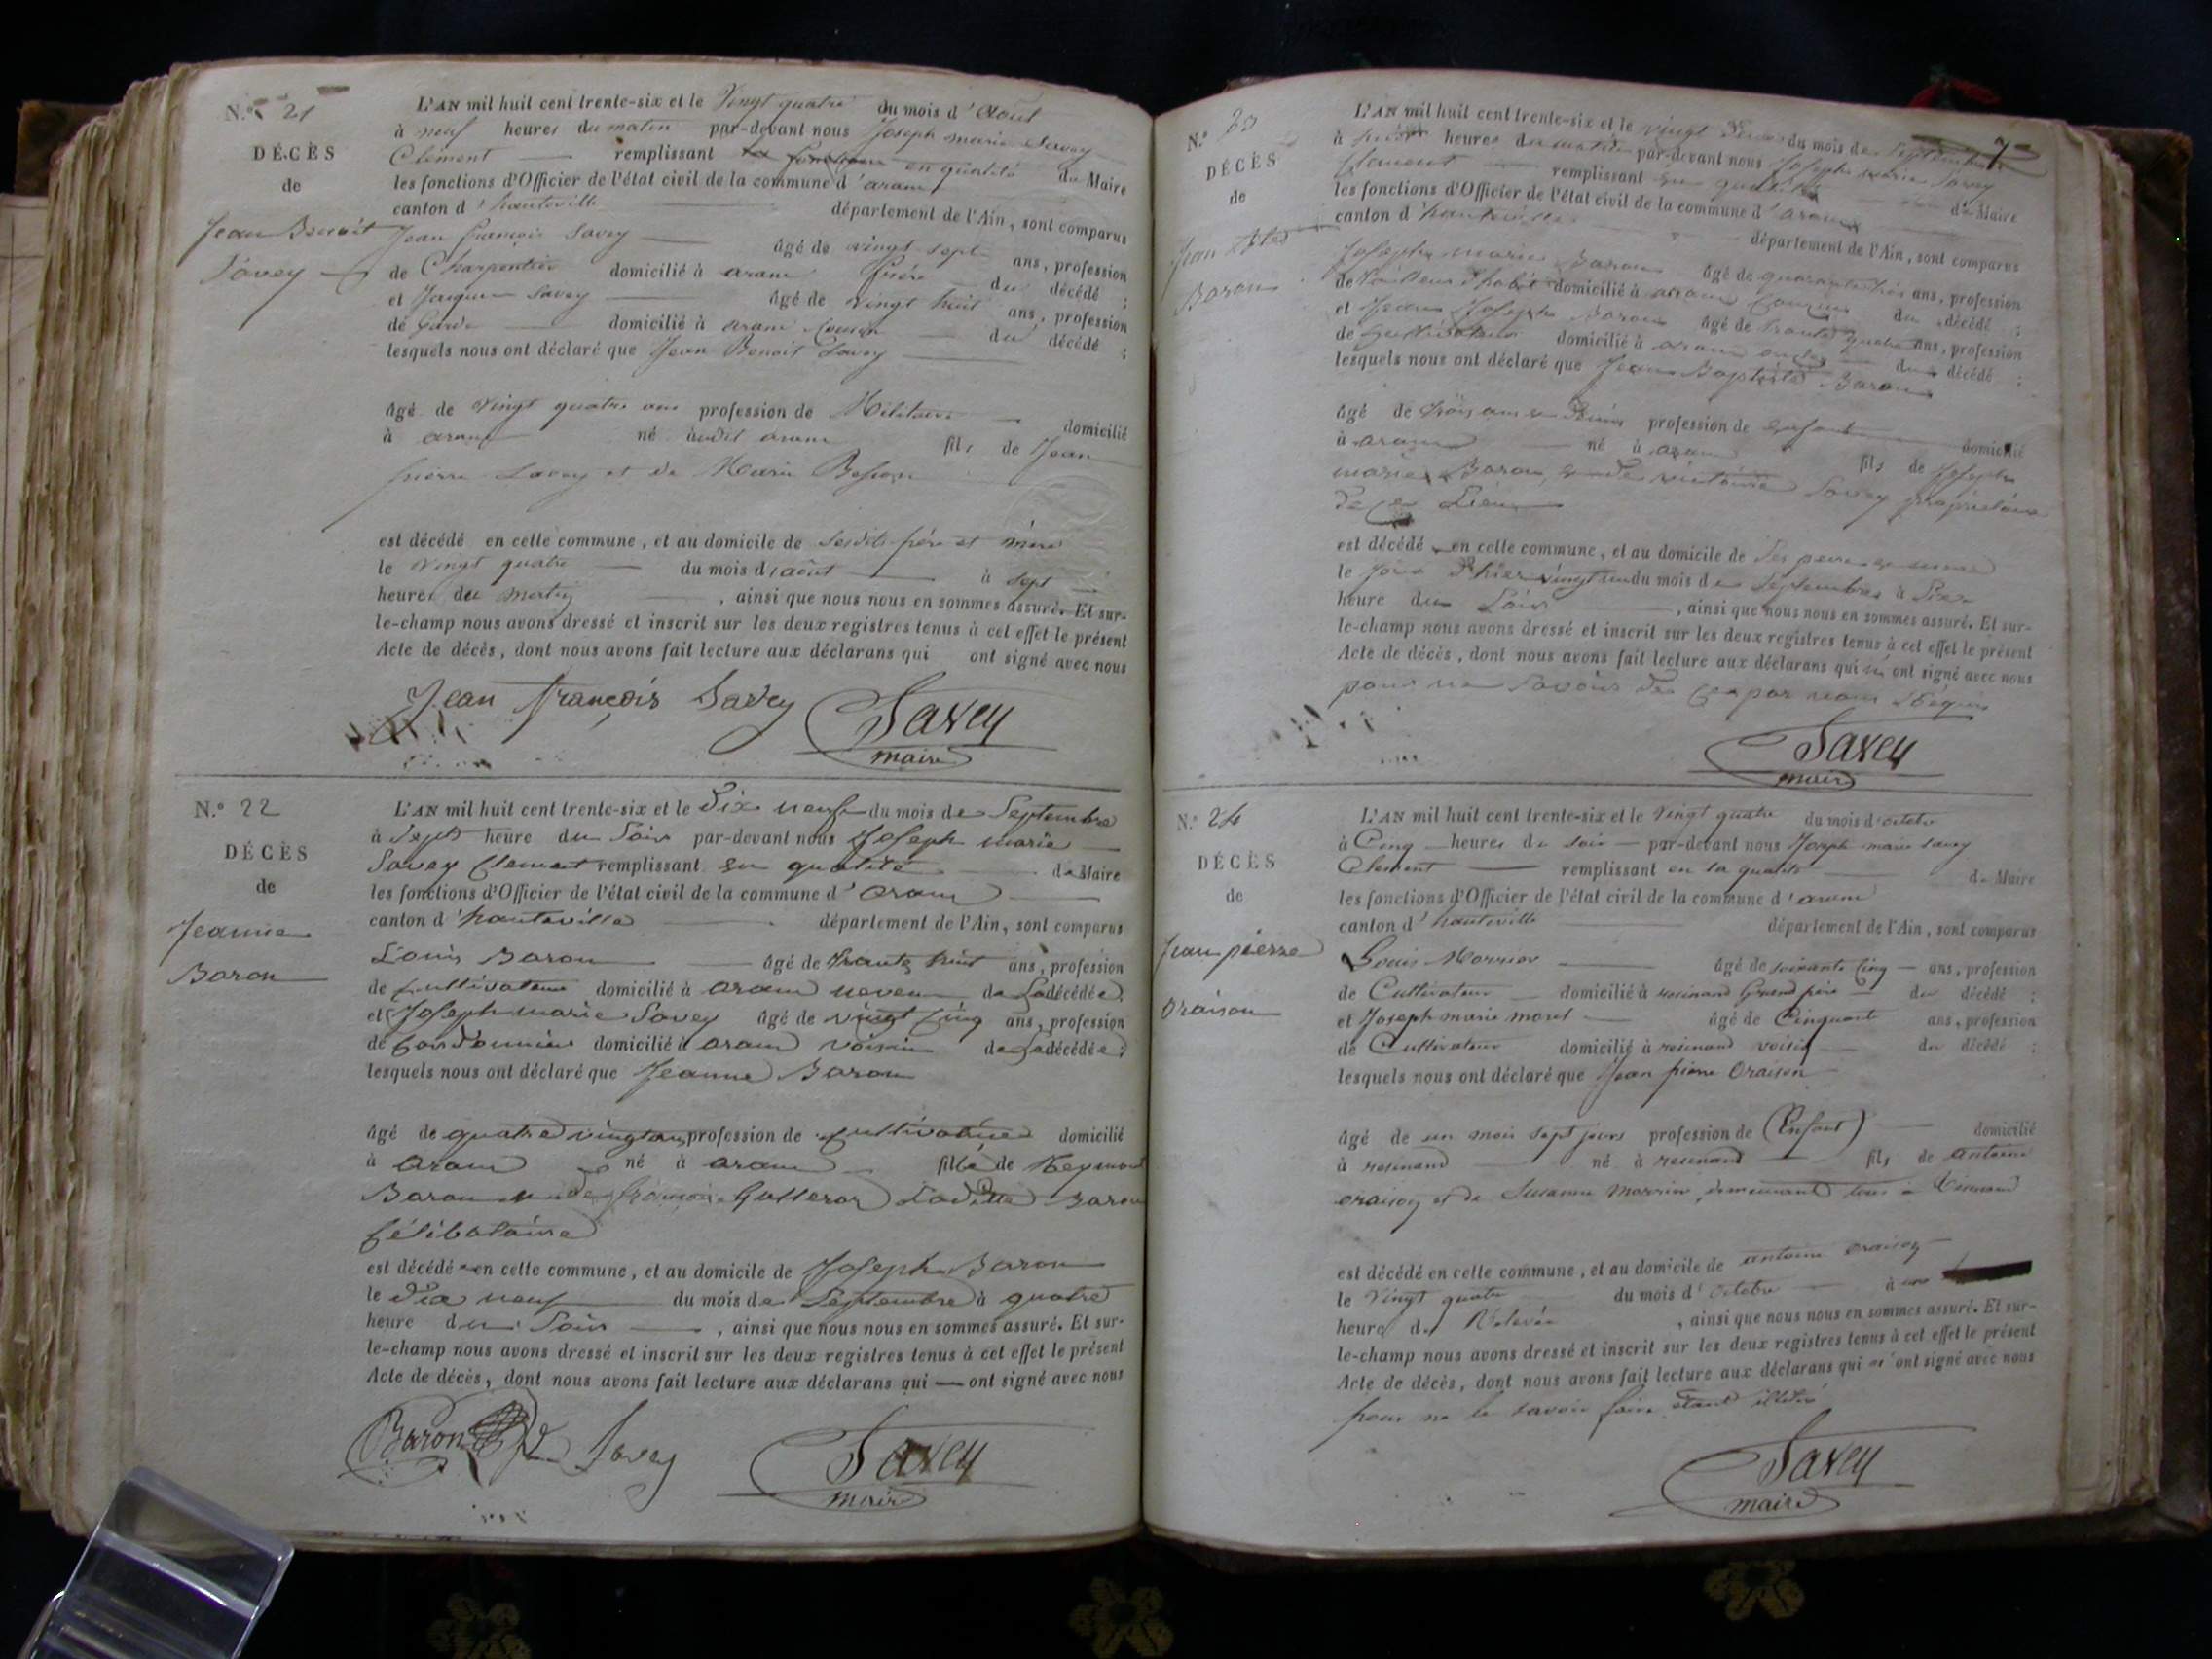 N.º 21
DÉCÈS
de
Jean Benoit
Savey
L'AN mil huit cent trente-six et le Vingt quatre du mois d'Août
à neuf heures du matin par-devant nous Joseph marie Savey
Clément remplissant en qualité de Maire
les fonctions d'Officier de l'état civil de la commune d'aranc
canton d'hauteville département de l'Ain, sont comparus
Jean françois Savey âgé de vingt sept ans, profession
de Charpentier domicilié à aranc frère du décédé ;
et Jacques Savey âgé de vingt huit ans, profession
de Garde domicilié à aranc Cousin du décédé ;
lesquels nous ont déclaré que Jean Benoit Savey
âgé de vingt quatre ans profession de Militaire domicilié
à aranc né audit aranc fils de Jean
pierre Savey et de Marie Besson
est décédé en cette commune, et au domicile de sesdits père et mère
le vingt quatre du mois d'août à sept
heures du matin, ainsi que nous nous en sommes assuré. Et sur-
le-champ nous avons dressé et inscrit sur les deux registres tenus à cet effet le présent
Acte de décès, dont nous avons fait lecture aux déclarans qui ont signé avec nous
Jean françois Savey Savey
maire
N.º 22
DÉCÈS
de
Jeanne
Baron
L'AN mil huit cent trente-six et le Dix neuf du mois de Septembre
à Sept heure du Soir par-devant nous Joseph marie
Savey Clement remplissant en qualité de Maire
les fonctions d'Officier de l'état civil de la commune d'aranc
canton d'hauteville département de l'Ain, sont comparus
Louis Baron âgé de trante huit ans, profession
de Cultivateur domicilié à aranc neveu de La décédée ;
et Joseph marie Savey âgé de vingt Cinq ans, profession
de Cordonnier domicilié à aranc voisin de La décédée ;
lesquels nous ont déclaré que Jeanne Baron
âgé de quatre vingt ans profession de Cultivatrice domicilié
à aranc né à aranc fille de Reymond
Baron de françoise Laditte Baron
Célibataire
est décédé en cette commune, et au domicile de Joseph Baron
le Dix neuf du mois de Septembre à quatre
heure du Soir, ainsi que nous nous en sommes assuré. Et sur-
le-champ nous avons dressé et inscrit sur les deux registres tenus à cet effet le présent
Acte de décès, dont nous avons fait lecture aux déclarans qui — ont signé avec nous
Baron Savey Savey
maire
N.º 23
DÉCÈS
de
Jean Bte
Baron
L'AN mil huit cent trente-six et le vingt Deux du mois de Septembre
à heures du matin par-devant nous Joseph marie Savey
Clement remplissant en qualité de Maire
les fonctions d'Officier de l'état civil de la commune d'aranc
canton d'hauteville département de l'Ain, sont comparus
Joseph marie Baron âgé de quarante ans, profession
de Tailleur d'habit domicilié à aranc Cousin du décédé ;
et Jean Joseph Baron âgé de trante quatre ans, profession
de Cultivateur domicilié à aranc oncle du décédé ;
lesquels nous ont déclaré que Jean Baptiste Baron
âgé de trois ans et Demis profession de Enfant domicilié
à aranc né à aranc fils de Joseph
marie Baron et de victoire Savey propriétaire
De ce Lieu
est décédé en cette commune, et au domicile de Ses pere et mere
le Jour D'hier vingt un du mois de Septembre à Six
heure du Soir, ainsi que nous nous en sommes assuré. Et sur-
le-champ nous avons dressé et inscrit sur les deux registres tenus à cet effet le présent
Acte de décès, dont nous avons fait lecture aux déclarans qui n'ont signé avec nous
pour ne Savoir De Ce par nous Réquis
Savey
maire
N.º 24
DÉCÈS
de
Jean pierre
Oraison
L'AN mil huit cent trente-six et le Vingt quatre du mois d'octobre
à Cinq heures du soir par-devant nous Joseph marie Savey
Clement remplissant en sa qualité de Maire
les fonctions d'Officier de l'état civil de la commune d'aranc
canton d'hauteville département de l'Ain, sont comparus
Louis âgé de soixante Cinq ans, profession
de Cultivateur domicilié à resinand Grand père du décédé ;
et Joseph marie moret âgé de Cinquante ans, profession
de Cultivateur domicilié à resinand voisin du décédé ;
lesquels nous ont déclaré que Jean pierre Oraison
âgé de un mois sept jours profession de (Enfant) domicilié
à resinand né à resinand fils de antoine
oraison et de Susanne demeurant tous à
est décédé en cette commune, et au domicile de antoine oraison
le Vingt quatre du mois d'octobre à une
heure de Relevée, ainsi que nous nous en sommes assuré. Et sur-
le-champ nous avons dressé et inscrit sur les deux registres tenus à cet effet le présent
Acte de décès, dont nous avons fait lecture aux déclarans qui n'ont signé avec nous
pour ne le savoir faire étant illitré
Savey
maire